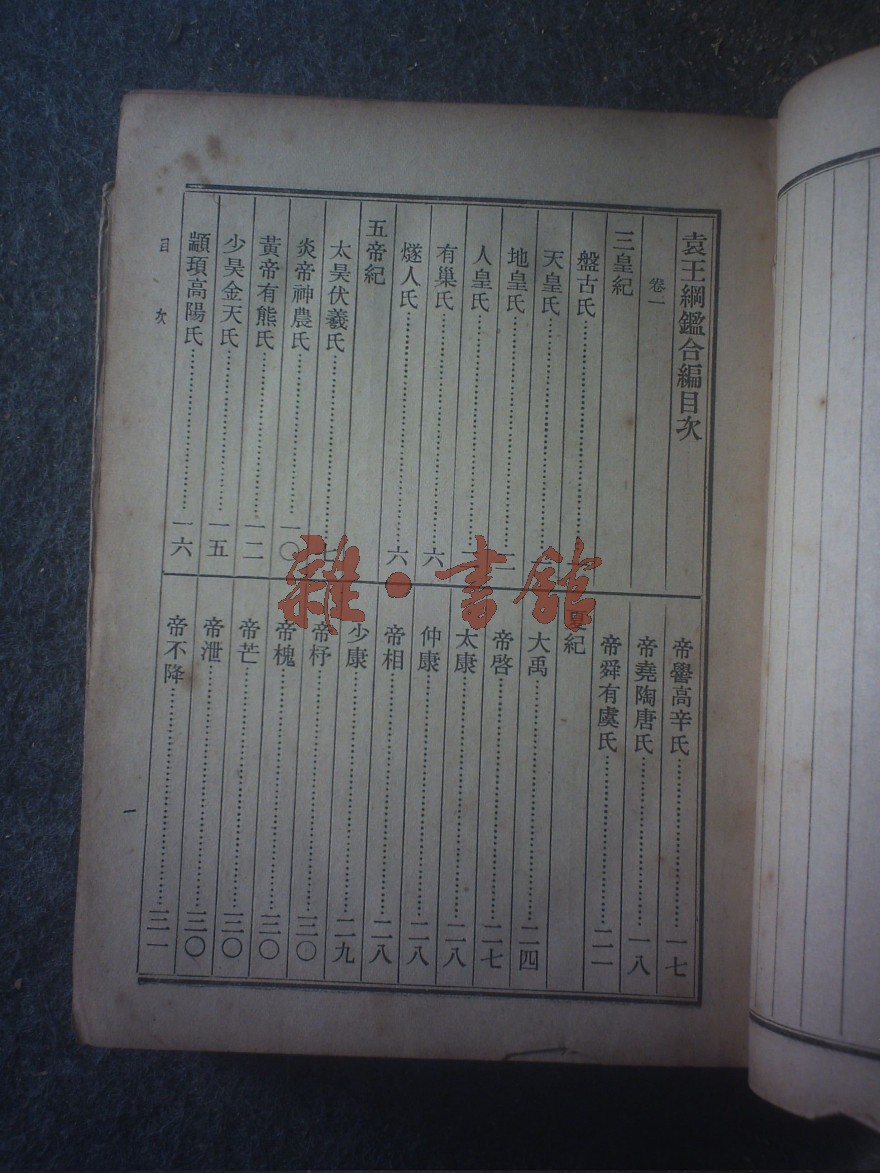 袁王綱鑑合編目次
卷一
三皇紀
盤古氏
天皇氏
地皇氏
人皇氏
有巢氏……六
燧人氏……六
五帝紀
太昊伏羲氏……七
炎帝神農氏……一〇
黃帝有熊氏……一二
少昊金天氏……一五
顓頊高陽氏……一六
帝嚳高辛氏……一七
帝堯陶唐氏……一八
帝舜有虞氏……二一
夏紀
大禹……二四
帝啓……二七
太康……二八
仲康……二八
帝相……二八
少康……二九
帝杼……三〇
帝槐……三〇
帝芒……三〇
帝泄……三〇
帝不降……三一
目次
一
雜·書館